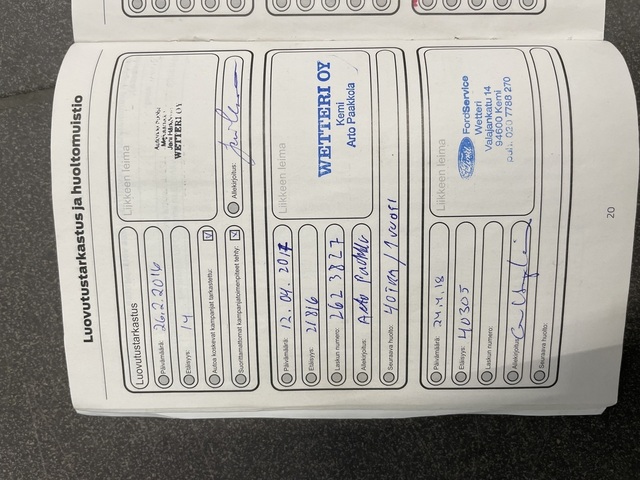 Luovutustarkastus ja huoltomuistio
Luovutustarkastus
Päivämäärä: 26.2.2016
Etäisyys: 14
Autoa koskevat kampanjat tarkastettu: V
Suorittamattomat kampanjatoimenpiteet tehty: V
Liikkeen leima
WETTERI OY
Allekirjoitus:
Päivämäärä: 12.04.2017
Etäisyys: 21816
Laskun numero: 2623827
Allekirjoitus: Arto Paakkola
Seuraava huolto: 40tkm/1vuosi
Liikkeen leima
WETTERI OY
Kemi
Arto Paakkola
Päivämäärä: 24.4.18
Etäisyys: 40305
Laskun numero:
Allekirjoitus:
Seuraava huolto:
Liikkeen leima
Ford FordService
Wetteri
Valajankatu 14
94600 Kemi
puh. 020 7788 270
20